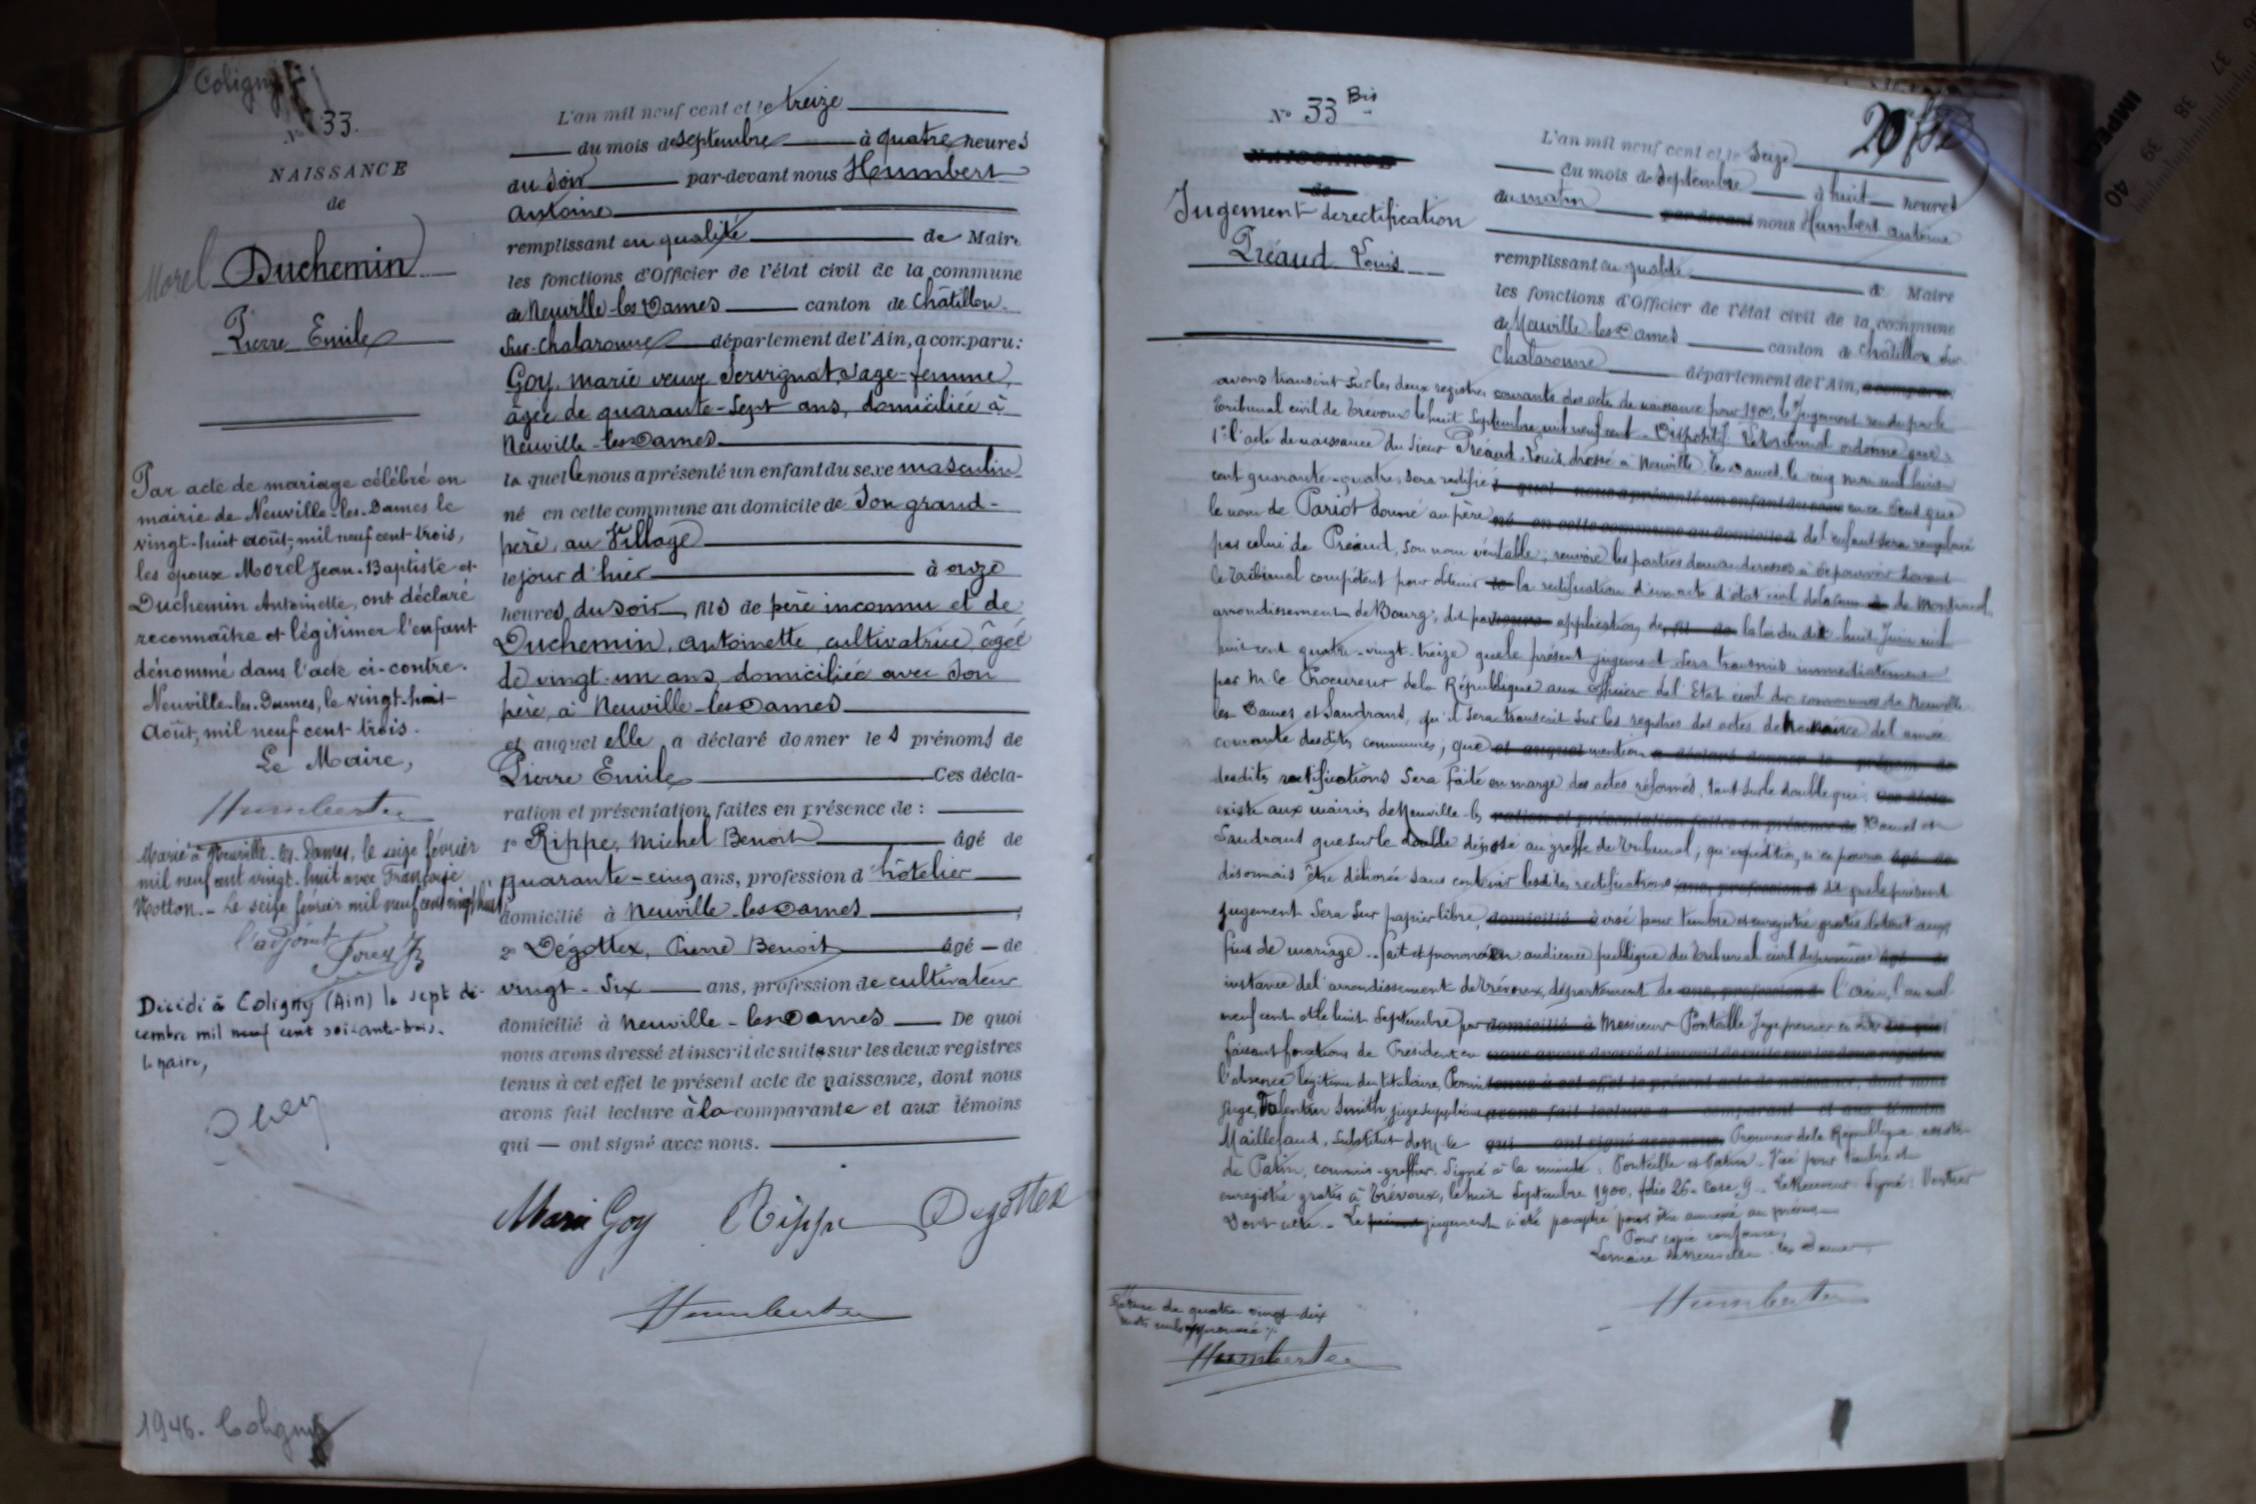 Coligny
N° 33.
NAISSANCE
de
Morel Duchemin
Pierre Emile
Par acte de mariage célébré en
mairie de Neuville-les-Dames le
vingt-huit août, mil neuf cent-trois,
les époux Morel Jean-Baptiste et
Duchemin Antoinette, ont déclaré
reconnaître et légitimer l'enfant
dénommé dans l'acte ci-contre.
Neuville-les-Dames, le vingt-huit
Août, mil neuf cent-trois.
Le Maire,
Humbert
Marié à Neuville-les-Dames, le seize février
mil neuf cent vingt-huit avec Françoise
Motton. - Le seize février mil neuf cent vingt huit
l'adjoint
Décédé à Coligny (Ain) le sept dé-
cembre mil neuf cent soixante-trois.
le maire,
1946. Coligny
L'an mil neuf cent et le treize
du mois de septembre à quatre heures
du soir par-devant nous Humbert
Antoine
remplissant en qualité de Maire
les fonctions d'Officier de l'état civil de la commune
de Neuville-les-Dames canton de Châtillon-
sur-Chalaronne département de l'Ain, a comparu:
Goy, marie veuve Servignat, sage-femme,
âgée de quarante-sept ans, domiciliée à
Neuville-les-Dames
laquelle nous a présenté un enfant du sexe masculin
né en cette commune au domicile de son grand-
père, au Village
le jour d'hier à onze
heures du soir, fils de père inconnu et de
Duchemin, Antoinette, cultivatrice, âgée
de vingt-un ans, domiciliée avec son
père, à Neuville-les-Dames
et auquel elle a déclaré donner les prénoms de
Pierre Emile Ces décla-
ration et présentation faites en présence de :
1° Rippe, Michel Benoit âgé de
quarante-cinq ans, profession d'hôtelier
domicilié à Neuville-les-Dames ;
2° Dégottex, Pierre Benoit âgé de
vingt-six ans, profession de cultivateur
domicilié à Neuville-les-Dames De quoi
nous avons dressé et inscrit de suite sur les deux registres
tenus à cet effet le présent acte de naissance, dont nous
avons fait lecture à la comparante et aux témoins
qui ont signé avec nous.
Marie Goy Rippe Degottex
Humbert
N° 33 Bis
NAISSANCE
de
Jugement de rectification
Préaud Louis
L'an mil neuf cent et le seize
du mois de septembre à huit heures
du matin par-devant nous Humbert Antoine
remplissant en qualité de Maire
les fonctions d'Officier de l'état civil de la commune
de Neuville-les-Dames canton de Châtillon sur
Chalaronne département de l'Ain, a comparu
avons transcrit sur les deux registres courants des actes de naissance pour 1900, le Jugement rendu par le
Tribunal civil de Trévoux le huit Septembre mil neuf cent. - Dispositif. Le Tribunal ordonne que :
1° l'acte de naissance du sieur Préaud, Louis, dressé à Neuville les Dames le cinq mai mil huit
cent quarante-quatre, sera rectifié en ce sens que
le nom de Pariot donné au père de l'enfant sera remplacé
par celui de Préaud, son nom véritable ; renvoie les parties demanderesses à se pourvoir devant
le tribunal compétent pour obtenir la rectification d'un acte d'état civil de de Montrevel,
arrondissement de Bourg ; dit par application de la loi du dix huit Juin mil
huit cent quatre-vingt-treize que le présent jugement sera transmis immédiatement
par M. le Procureur de la République aux officiers de l'Etat civil des communes de Neuville
les Dames et Sandrans, qu'il sera transcrit sur les registres des actes de naissance de l'année
courante desdites communes ; que mention
desdites rectifications sera faite en marge des actes réformés, tant sur le double qui
existe aux mairies de Neuville-les Dames et
Sandrans que sur le double déposé au greffe du Tribunal ; qu'expédition, n'en pourra
désormais être délivrée sans contenir lesdites rectifications dit que le présent
jugement sera sur papier libre, visé pour timbre et enregistré gratis
fins de mariage. - Fait et prononcé en audience publique du Tribunal civil de première
instance de l'arrondissement de Trévoux, département de l'ain, l'an mil
neuf cent et le huit Septembre par Messieurs Pontelle Juge
faisant fonctions de Président en
l'absence légitime du titulaire,
juge, Valentin Smith juge suppléant
Maillefaud, Substitut de M. le Procureur de la République, assistés
de Patin, commis-greffier. Signé à la minute : Pontelle et Patin. - Visé pour timbre et
enregistré gratis à Trévoux, le huit Septembre 1900, folio 26. Case 9. Le Receveur Signé :
Dont acte. - Le jugement a été paraphé pour être annexé au présent
Pour copie conforme,
Le maire de Neuville-les-Dames,
Humbert
Rature de quatre vingt-dix
mots nuls approuvée
Humbert